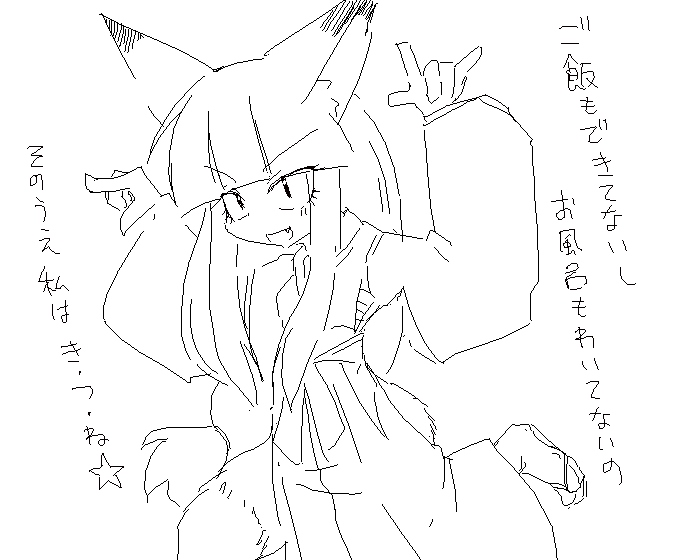 ご飯もできてないし
お風呂もわいてないの
そのうえ私はき・つ・ね☆